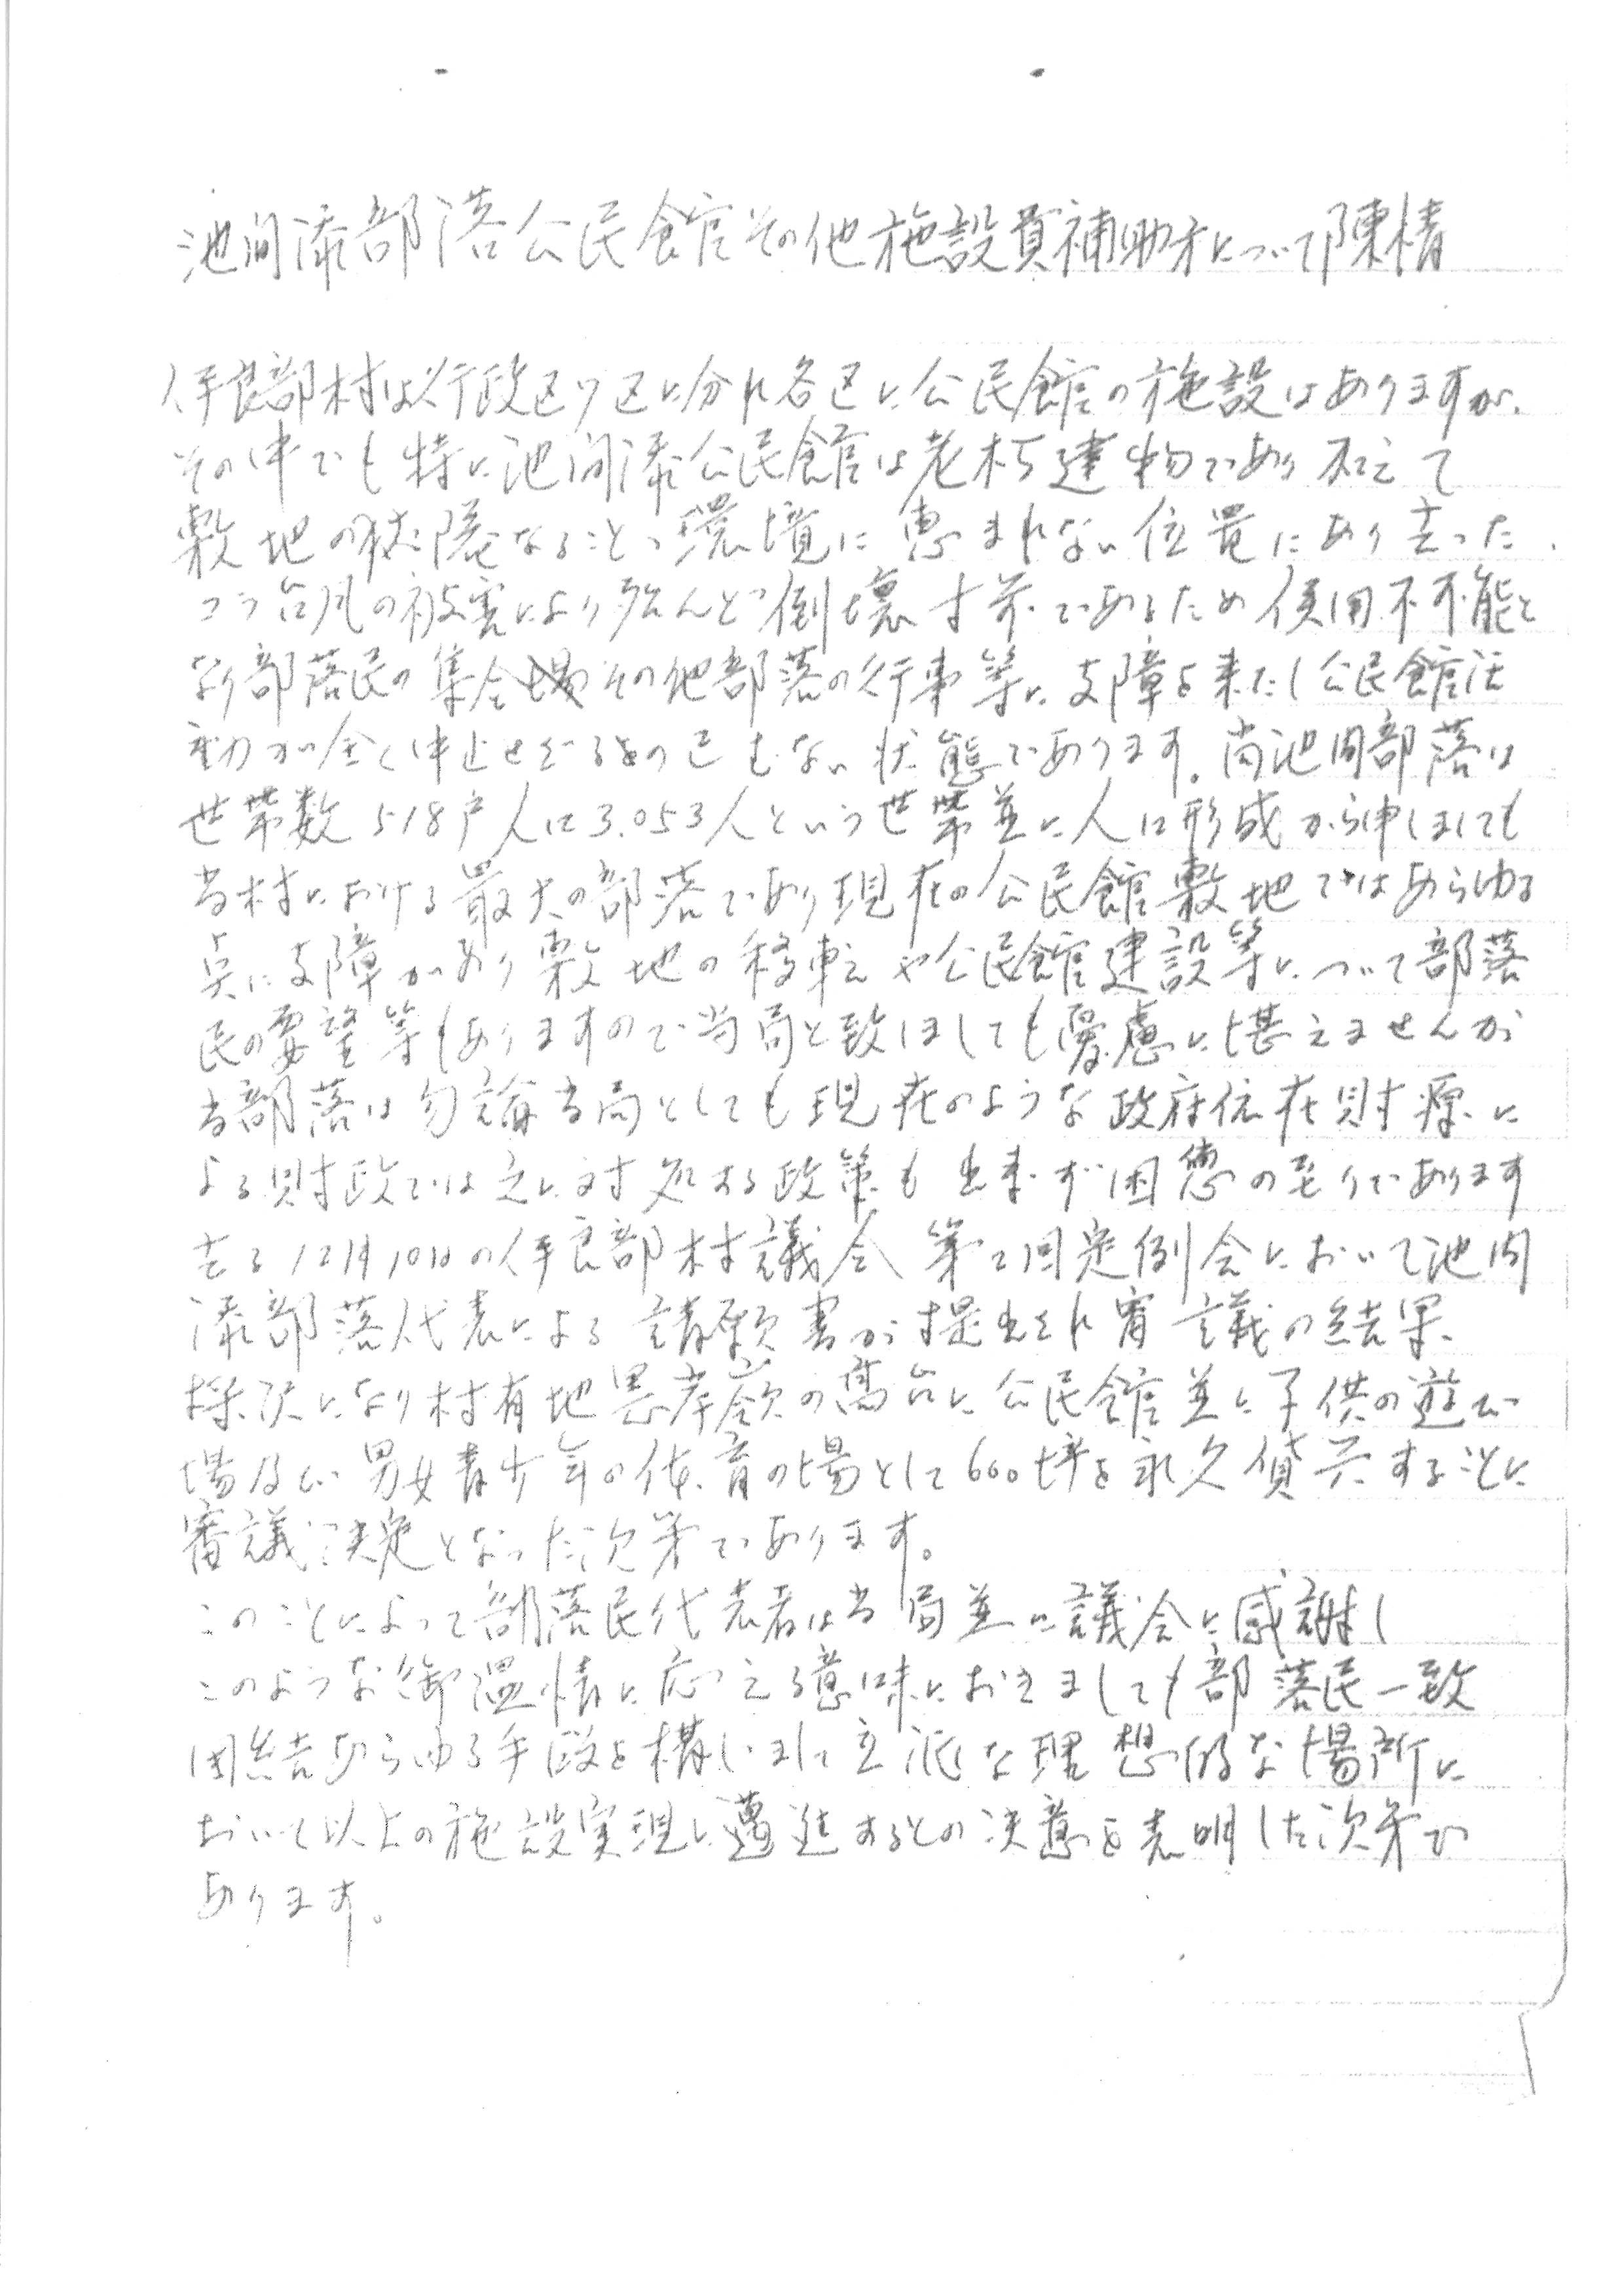 池間添部落公民館その他施設費補助方について陳情
伊良部村は行政区7区に分れ各区に公民館の施設はありますが、
その中でも特に池間添公民館は老朽建物であり加えて
敷地の狭隘なることゝ環境に恵まれない位置にあり去った
コラ台風の被害により殆んど倒壊寸前であるため使用不可能と
なり部落民の集会場その他部落の行事等に支障を来たし公民館活
動が全く中止せざるをの已もない状態であります。尚池間部落は
世帯数518戸人口3.053人という世帯並に人口形成から申しましても
当村における最大の部落であり現在の公民館敷地ではあらゆる
点に支障があり敷地の移転や公民館建設等について部落
民の要望等もありますので当局と致しましても憂慮に堪えませんが
当部落は勿論当局としても現在のような政府依存財源に
よる財政では之に対処する政策も出来ず困惑の至りであります
去る12月10日の伊良部村議会第2回定例会において池間
添部落代表による請願書が提出され審議の結果、
採択になり村有地 の高台に公民館並に子供の遊び
場及び男女青少年の体育の場として600坪を永久貸与することに
審議決定となった次第であります。
このことによって部落民代表者は当局並に議会に感謝し
このような御温情に応える意味におきましても部落民一致
団結あらゆる手段を構じまして立派な理想的な場所に
おいて以上の施設実現に邁進するとの決意を表明した次第で
あります。